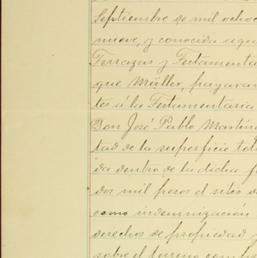 Septiembre de mil ochoc
nueve, y conocida segun
Terrazas y Testamenta
que Müller, pagaran
tes á la Testamentaria
Don José Pablo Martín
tad de la superficie tot
da dentro de la dicha f
dos mil pesos el sitio d
como indemnización
derechos de propiedad y
sobre el terreno comp